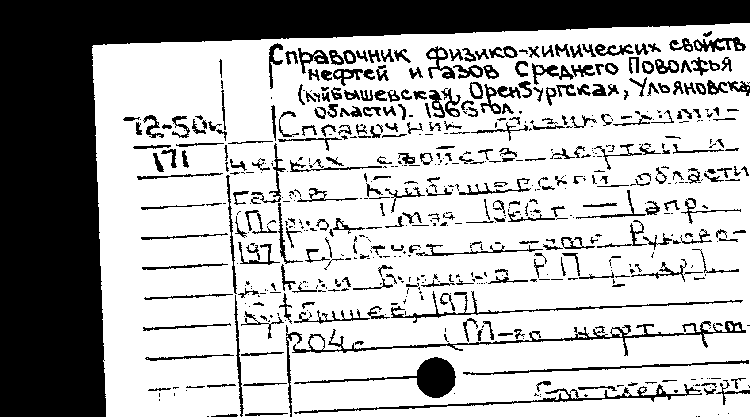 Справочник физико-химических свойств
нефтей и газов Среднего Поволжья
(Куйбышевская, Оренбургская, Ульяновская
области). 1966 гол.
72-50к Справочник физико-хими-
171 ческих свойств нефтей и
газов Куйбышевской области
(Период 1 мая 1966 г. — 1 апр.
1971 г). Отчет по теме. Руково-
дители Бурлина Р.П. [и др].
Куйбышев, 1971.
204с (М-во нефт. пром-
См. след. карт.